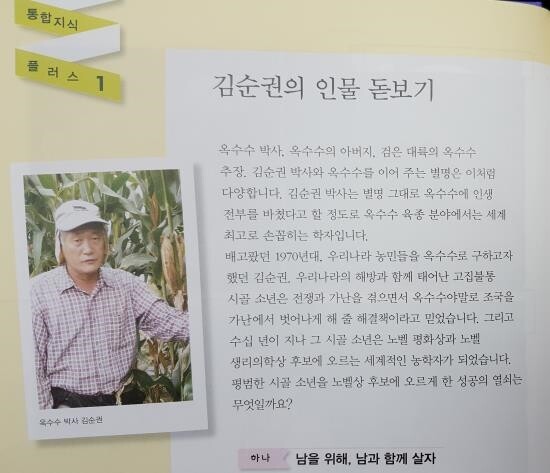 통합지식
플러스 1
김순권의 인물 돋보기
옥수수 박사, 옥수수의 아버지, 검은 대륙의 옥수수
추장. 김순권 박사와 옥수수를 이어 주는 별명은 이처럼
다양합니다. 김순권 박사는 별명 그대로 옥수수에 인생
전부를 바쳤다고 할 정도로 옥수수 육종 분야에서는 세계
최고로 손꼽히는 학자입니다.
배고팠던 1970년대, 우리나라 농민들을 옥수수로 구하고자
했던 김순권. 우리나라의 해방과 함께 태어난 고집불통
시골 소년은 전쟁과 가난을 겪으면서 옥수수야말로 조국을
가난에서 벗어나게 해 줄 해결책이라고 믿었습니다. 그리고
수십 년이 지나 그 시골 소년은 노벨 평화상과 노벨
생리의학상 후보에 오르는 세계적인 농학자가 되었습니다.
평범한 시골 소년을 노벨상 후보에 오르게 한 성공의 열쇠는
무엇일까요?
옥수수 박사 김순권
하나 남을 위해, 남과 함께 살자